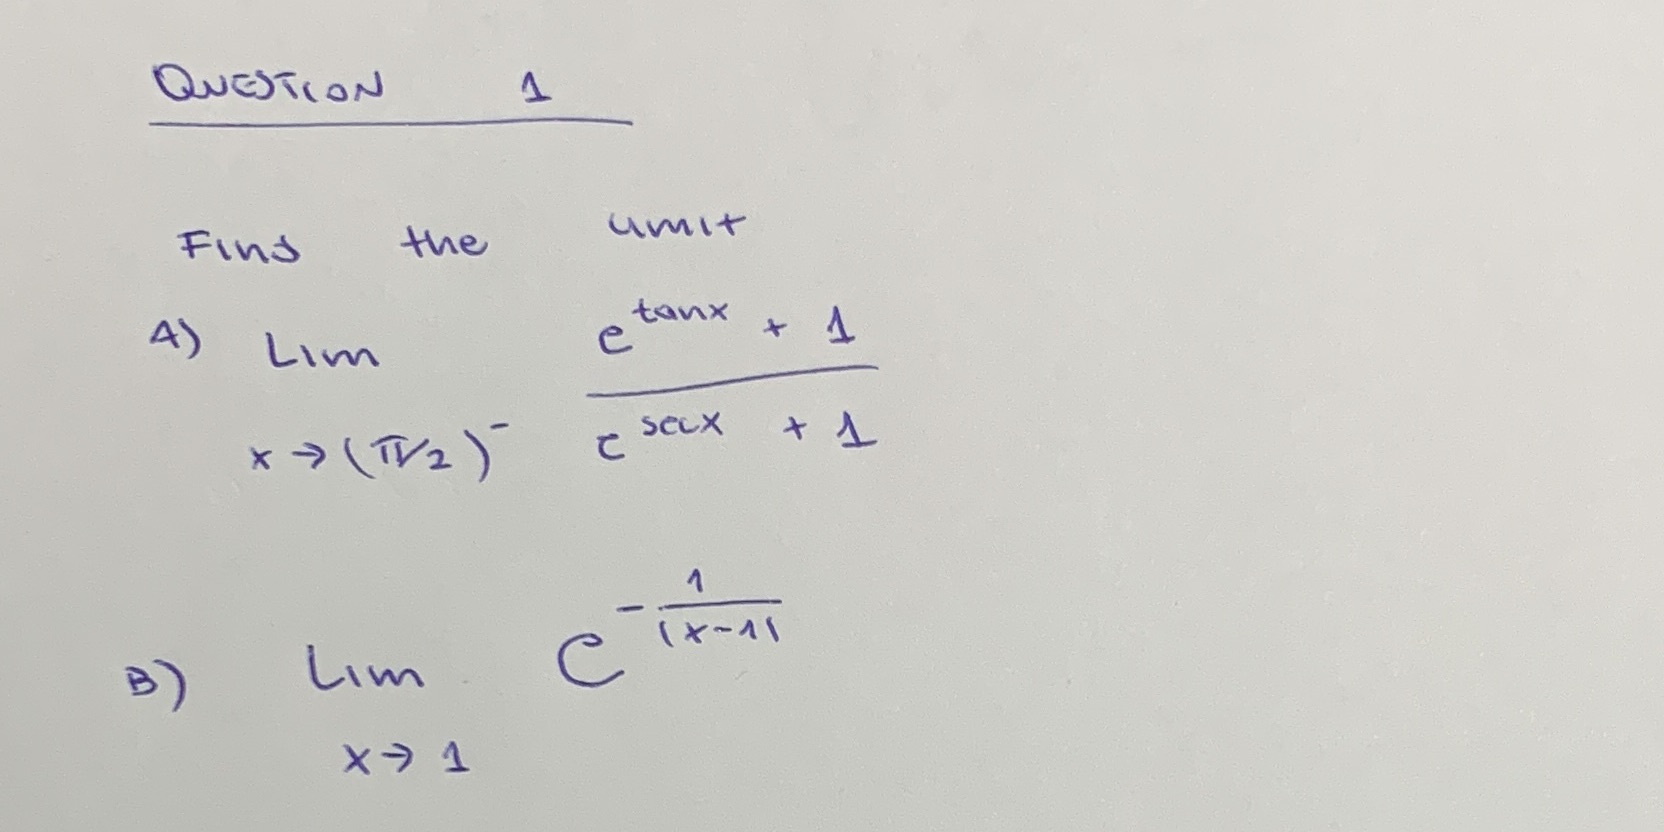 QUESTION 1
Find the limit
A) Lim e^tanx + 1
x→(π/2)⁻ e^secx + 1
B) Lim e^-1/|x-1|
x→1